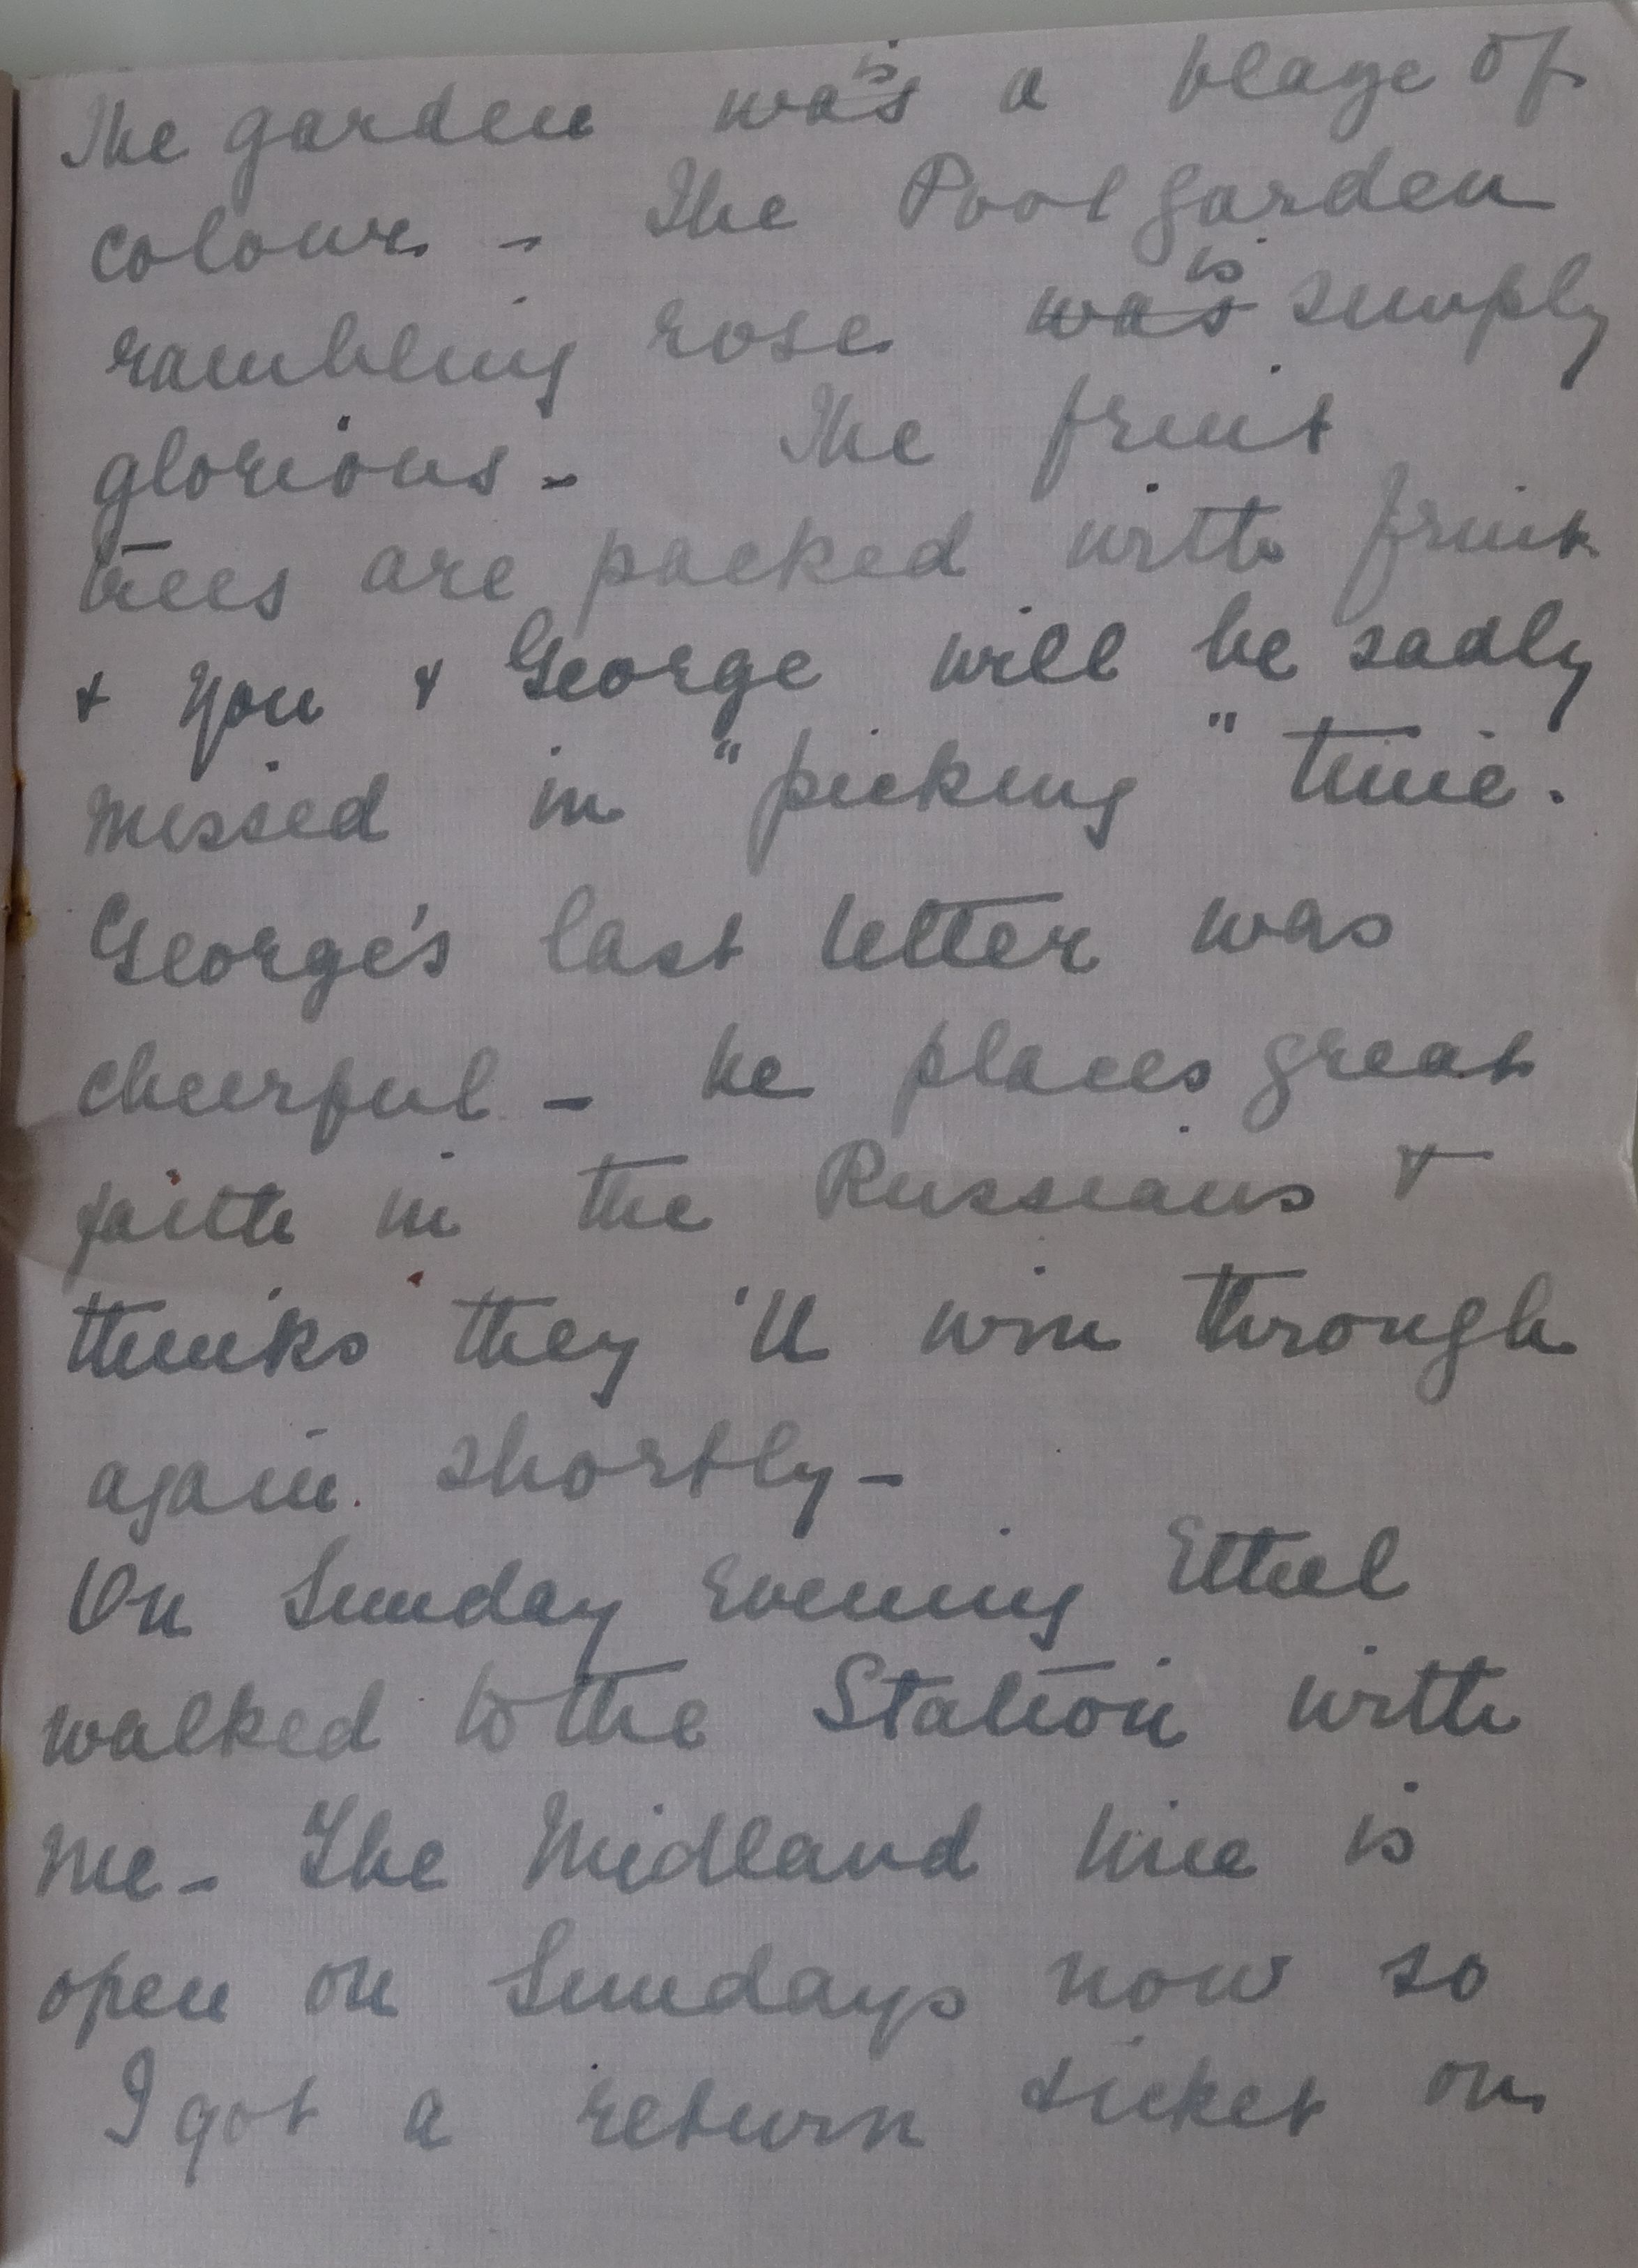 The garden ~~was~~ is a blaze of
colour - The Pool garden
rambling rose ~~was~~ is simply
glorious - The fruit
trees are packed with fruit
+ you + George will be sadly
missed in "picking" time.
George's last letter was
cheerful - he places great
faith in the Russians +
thinks they'll win through
again shortly -
On Sunday Evening Ethel
walked to the Station with
me - The Midland line is
open on Sundays now so
I got a return ticket on